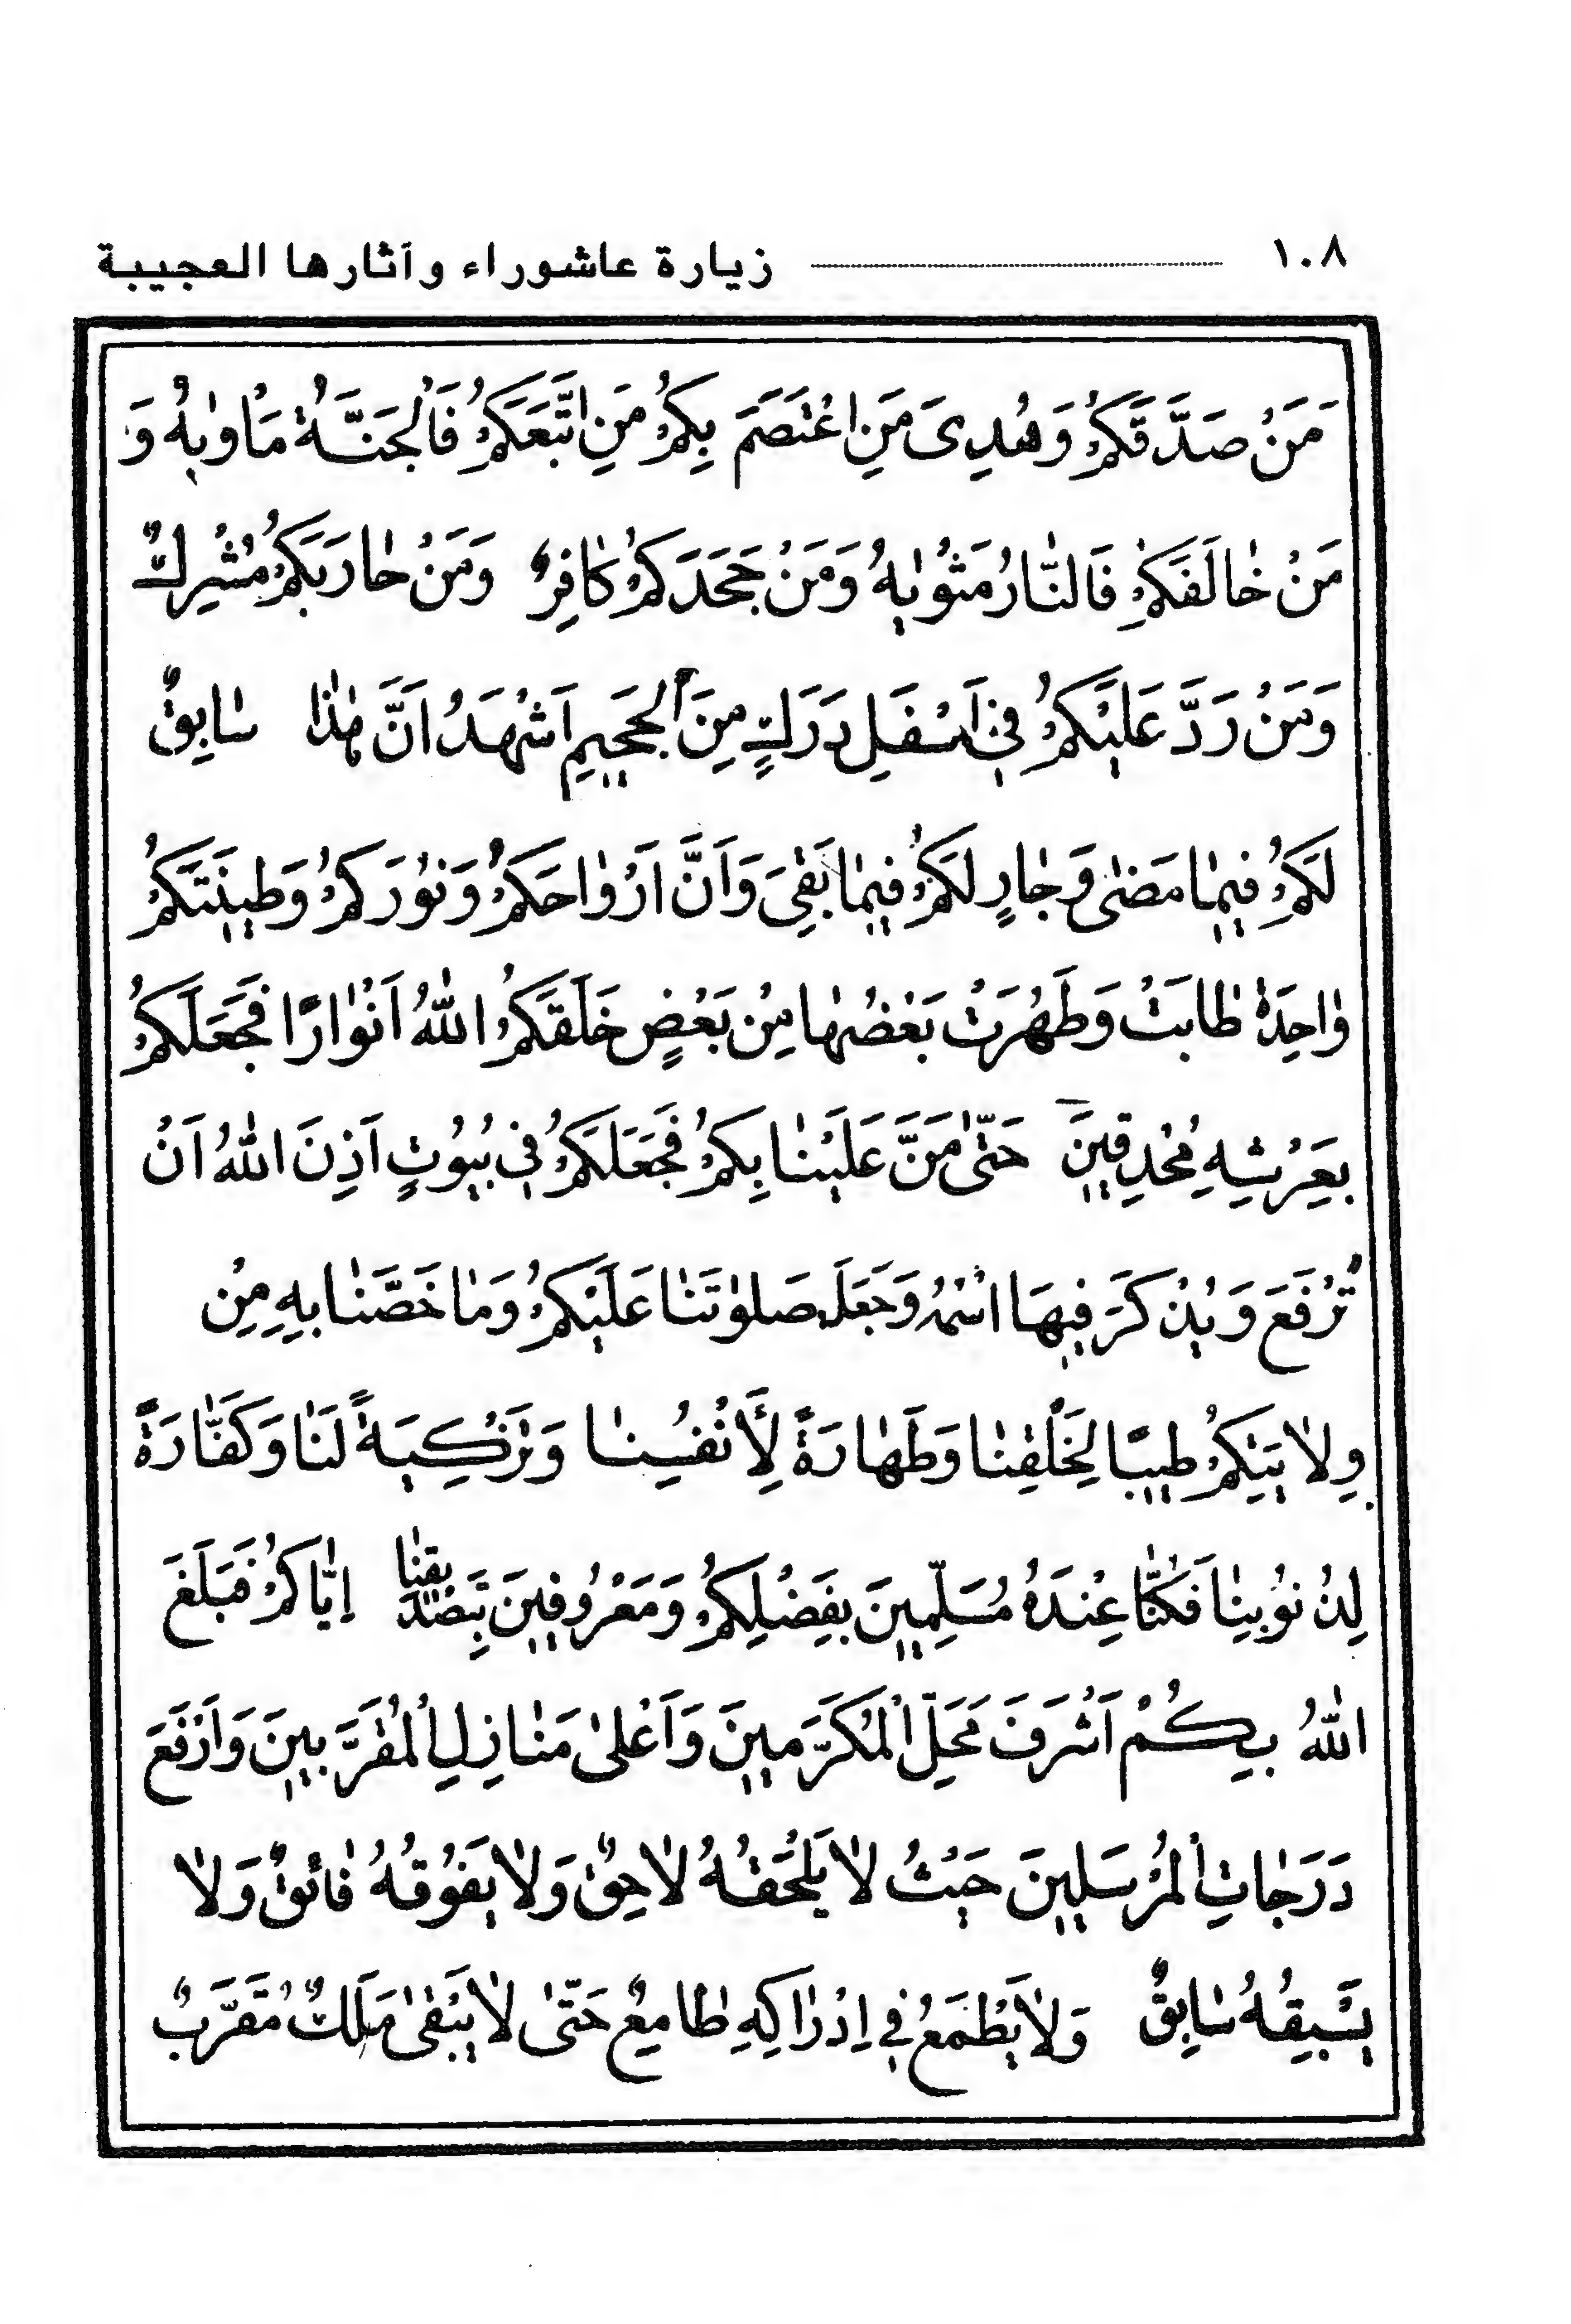 ١٠٨ زيارة عاشوراء وآثارها العجيبة
مَنْ صَدَّقَكُمْ وَهُدِىَ مَنِ اعْتَصَمَ بِكُمْ مَنِ اتَّبَعَكُمْ فَالْجَنَّةُ مَاْوٰیهُ وَ
مَنْ خٰالَفَكُمْ فَالنّٰارُ مَثْوٰیهُ وَمَنْ جَحَدَكُمْ كٰافِرٌ وَمَنْ حٰارَبَكُمْ مُشْرِكٌ
وَمَنْ رَدَّ عَلَيْكُمْ فِي اَسْفَلِ دَرَكٍ مِنَ الْجَحِيمِ اَشْهَدُ اَنَّ هٰذٰا سٰابِقٌ
لَكُمْ فِيمٰا مَضىٰ وَجٰارٍ لَكُمْ فِيمٰا بَقِيَ وَاَنَّ اَرْوٰاحَكُمْ وَنُورَكُمْ وَطِينَتَكُمْ
وٰاحِدَةٌ طٰابَتْ وَطَهُرَتْ بَعْضُهٰا مِنْ بَعْضٍ خَلَقَكُمُ اللّٰهُ اَنْوٰارًا فَجَعَلَكُمْ
بِعَرْشِهِ مُحْدِقِينَ حَتّٰى مَنَّ عَلَيْنٰا بِكُمْ فَجَعَلَكُمْ فِي بُيُوتٍ اَذِنَ اللّٰهُ اَنْ
تُرْفَعَ وَيُذْكَرَ فِيهَا اسْمُهُ وَجَعَلَ صَلَوٰتَنٰا عَلَيْكُمْ وَمٰا خَصَّنٰا بِهِ مِنْ
وِلاٰيَتِكُمْ طِيبًا لِخَلْقِنٰا وَطَهٰارَةً لِأَنْفُسِنٰا وَتَزْكِيَةً لَنٰا وَكَفّٰارَةً
لِذُنُوبِنٰا فَكُنّٰا عِنْدَهُ مُسَلِّمِينَ بِفَضْلِكُمْ وَمَعْرُوفِينَ بِتَصْدِيقِنٰا اِيّٰاكُمْ فَبَلَغَ
اللّٰهُ بِكُمْ اَشْرَفَ مَحَلِّ الْمُكَرَّمِينَ وَاَعْلىٰ مَنٰازِلِ الْمُقَرَّبِينَ وَاَرْفَعَ
دَرَجٰاتِ الْمُرْسَلِينَ حَيْثُ لاٰ يَلْحَقُهُ لاٰحِقٌ وَلاٰ يَفُوقُهُ فٰائِقٌ وَلاٰ
يَسْبِقُهُ سٰابِقٌ وَلاٰ يَطْمَعُ فِي اِدْرٰاكِهِ طٰامِعٌ حَتّٰى لاٰ يَبْقىٰ مَلَكٌ مُقَرَّبٌ